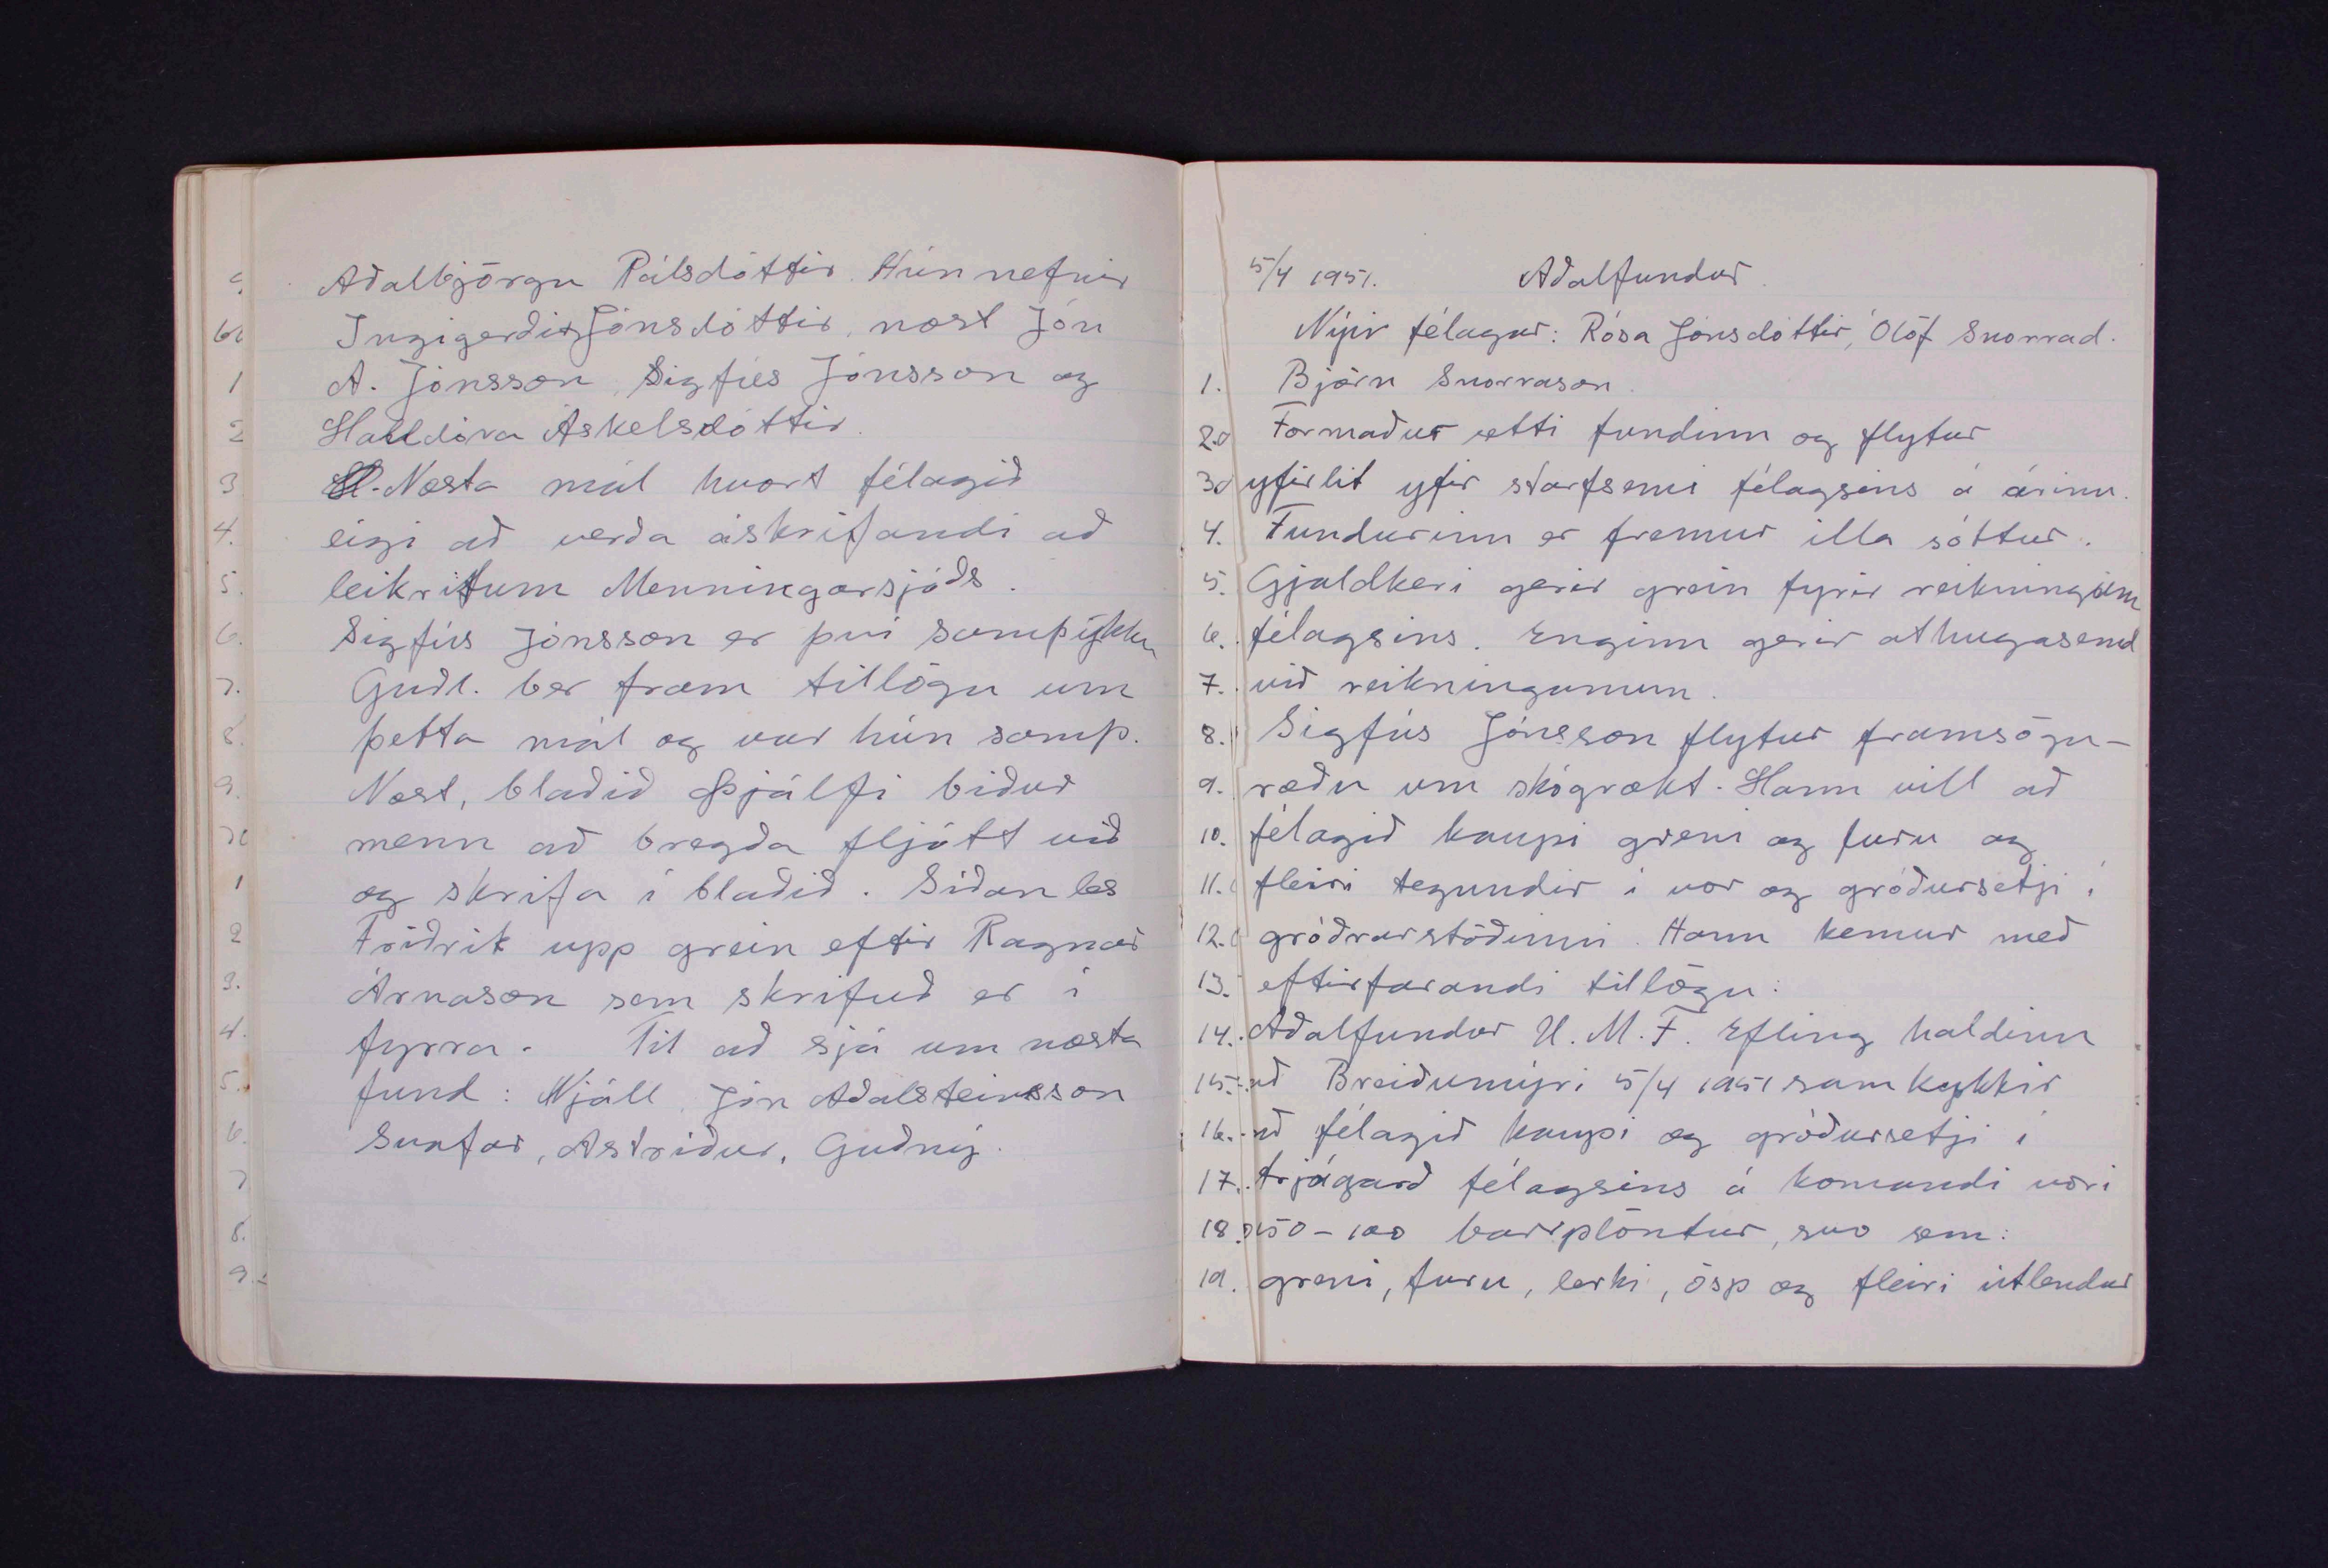 Aðalbjörgu Pálsdóttir. Hún nefnir
Ingigerði Jónsdóttir, næst Jón
A. Jónsson, Sigfús Jónsson og
Halldóra Áskelsdóttir.
Næsta mál hvort félagið
eigi að verða áskrifandi að
leikritum Menningarsjóðs.
Sigfús Jónsson er því samþykkur
Guðl. ber fram tillögu um
þetta mál og var hún samþ.
Næst, blaðið Þjálfi biður
menn að bregða fljótt við
og skrifa í blaðið. Síðan les
Friðrik upp grein eftir Ragnar
Árnason sem skrifuð er í
fyrra. Til að sjá um næsta
fund: Njáll Jón Aðalsteinsson
Snæfar, Astriður, Guðný.
5/4 1951. Aðalfundur.
Nýir félagar: Rósa Jónsdóttir, Ólöf Snorrad.
1. Björn Snorrason.
2. Formaður setti fundinn og flytur
3. yfirlit yfir starfsemi félagsins á árinu.
4. Fundurinn er fremur illa sóttur.
5. Gjaldkeri gerir grein fyrir reikningum
6. félagsins. Enginn gerir athugasemd
7. við reikningunum.
8. Sigfús Jónsson flytur framsögu-
9. ræðu um skógrækt. Hann vill að
10. félagið kaupi greni og furu og
11. fleiri tegundir í vor og gróðursetji í
12. gróðrarstöðinni. Hann kemur með
13. eftirfarandi tillögu:
14. Aðalfundur U.M.F. Efling haldinn
15. að Breiðumýri 5/4 1951 samþykkir
16. að félagið kaupi og gróðursetji í
17. trjágarð félagsins á komandi vori
18. 50-100 barrplöntur, svo sem:
19. greni, furu, lerki, ösp og fleiri útlendar